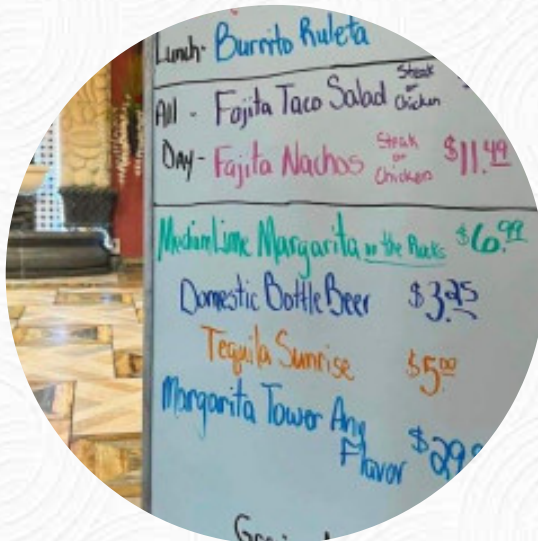 Lunch- Burrito Ruleta
All - Fajita Taco Salad Steak or Chicken
Day- Fajita Nachos Steak or Chicken $11.49
Medium Lime Margarita on the Rocks $6.99
Domestic Bottle Beer $3.25
Tequila Sunrise $5.00
Margarita Tower Any
Flavor $29.